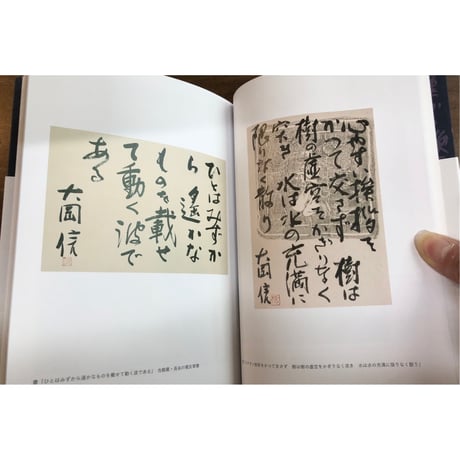 ひとはみずか
ら 遙かな
ものを載せ
て動く波で
ある
大岡信
「ひとはみずから遥かなものを載せて動く波である」
挨拶を
かつて交さず 樹は
樹の虚空をかぎりなく
突き 水は水の充満に
限りなく散り
大岡信
かつて交さず 樹は樹の虚空をかぎりなく突き 水は水の充満に限りなく散り」